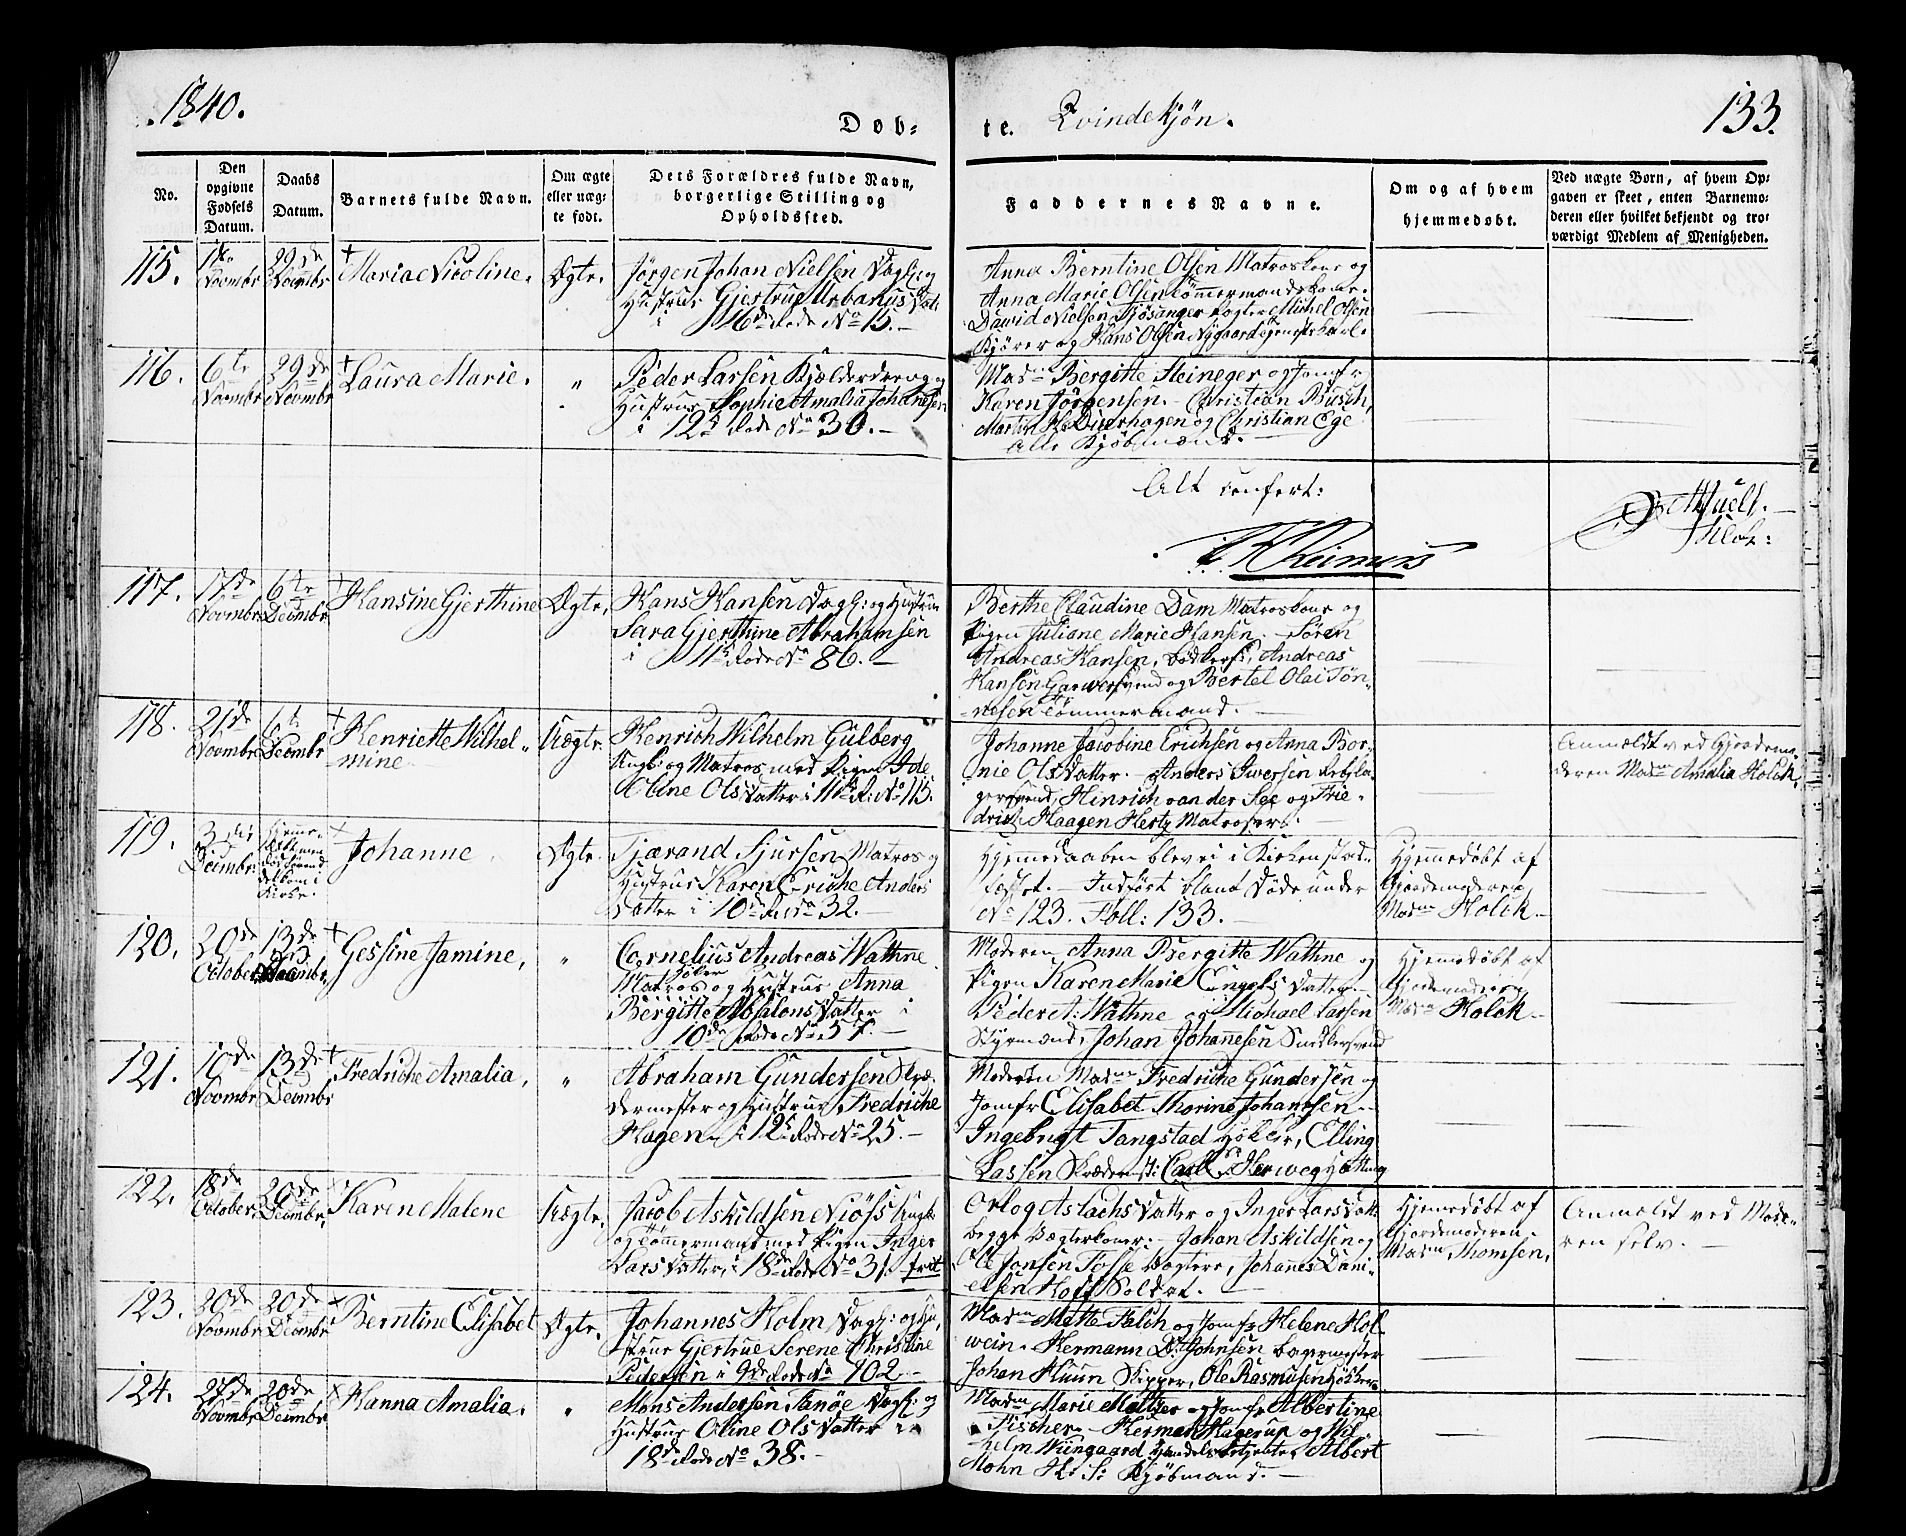 1840.
Døb-
te. Qvindekjøn.
133.
No.
Den opgivne Fødsels Datum.
Daabs Datum.
Barnets fulde Navn.
Om ægte eller uæg-
te født.
Dets Forældres fulde Navn,
borgerlige Stilling og
Opholdssted.
Faddernes Navne.
Om og af hvem
hjemmedøbt.
Ved uægte Børn, af hvem Op-
gaven er skeet, enten Barnemo-
deren eller hvilket bekjendt og tro-
værdigt Medlem af Menigheden.
115. Novmbr 29de Novmbr Maria Nicoline. Ægte.
Jørgen Johan Nielsen Dagl: og
Hustrue Gjertrue Urbanus Datt.
i 16de Rode No 15.
Anna Berntine Olsen Matroskone og
Anna Marie Olsen Tømmermandskone.
David Nielsen Michel Olsen
Kjører og Hans Olsen
116. 6te Novmbr 29de Novmbr Laura Marie. "
Peder Larsen Kjælderdreng og
Hustrue Sophie Amalia Johannesen
i 12te Rode No 30.
Madm Bergitte Steineger og Jomfr
Karen Jørgensen. Christian Busch,
Martin H. Duerhagen og Christian Ege
Alle Kjøbmænd.
Alt confert:
Reimers
117. 17de Novmbr 6te Decmbr Hansine Gjerthine Ægte.
Hans Hansen Dagl: og Hustrue
Sara Gjerthine Abrahamsen
i 11te Rode No 86.
Berthe Claudine Dam Matroskone og
Pigen Juliane Marie Hansen. Søren
Andreas Hansen, Andreas
Hansen Garversvend og Bertel Olai Tøn-
nesen Tømmermand.
118. 21de Novmbr 6te Decmbr Henriette Wilhel-
mine Uægte.
Henrich Wilhelm Gulberg
Ungk: og Matros med Pigen Ide
Oline Olsdatter i 11te R. No 113.
Johanne Jacobine Erichsen og Anna Bor-
nie Olsdatter. Anders Iversen Rebsla-
gersvend, Hinrich van der See og Frie-
drich Haagen Hertz Matroser.
Anmeldt ved Gjordemo-
deren Madm Amalia Holck.
119. 3die Decmbr Johanne Ægte.
Tjærand Sjursen Matros og
Hustrue Karen Eriche Anders
Datter i 10de R. No 32.
Hjemedaaben blev ei i Kirken stad-
fæstet. Indført blant Døde under
No 123. Foll: 133.
Hjemmedøbt af
Gjordemoderen
Madm Holck
120. 20de October 13de Decmbr Gessine Jamine, "
Cornelius Andreas Wathne
Matros og Hustrue Anna
Bergitte Absalons Datter i
10de Rode No 57.
Moderen Anna Bergitte Wathne og
Pigen Karen Marie Engels Datter.
Peder A. Wathne og Michael Larsen
Styrmænd, Johan Johanesen Snedkersvend
Hjemedøbt af
Gjordemoderen
Madm Holck
121. 10de Novmbr 13de Decmbr Fredriche Amalia, "
Abraham Gundersen Skræ-
dermester og Hustrue Fredriche
Hagen i 12te Rode No 25.
Moderen Madm Fredriche Gundersen og
Jomfr Elisabet Thorine Johannesen.
Ingebrigt Tangstad Høker, Elling
Lassen Skræderm: Carl Herweg
122. 18de October 20de Decmbr Karen Malene Uægte.
Jacob Askildsen Niøss Ungk:
og Tømmermand med Pigen Inger
Larsdatter, i 18de Rode No 31. frit
Orlog Aslachsdatter og Inger Larsdatt.
begge Vægterkoner. Johan Askildsen og
Ole Jonsen Fosse Vægtere, Johanes Dani-
elsen Hoff Soldat.
Hjemmedøbt af
Gjordemoderen
Madm Thomsen,
Anmeldt ved Mode-
ren selv.
123. 20de Novmbr 20de Decmbr Berntine Elisabet Ægte.
Johannes Holm Dagl: og Hu-
strue Gjertrue Serene Christine
Pedersen i 9de Rode No 102
Madm Mette Falch og Jomfr Helene Hol-
wein. Hermann D. Johnsen Bagermester
Johan Huun Skipper, Ole Rasmusen Høker
124. Novmbr 20de Decmbr Hanna Amalia. "
Mons Andersen Tanøe Dagl: og
Hustrue Oline Olsdatter i
18de Rode No 38.
Madm Marie Meltzer og Jomfr Albertine
Fischer. Herman Hagerup og Wil-
helm Wiingaard Handelsbetjenter, Albert
Mohn Kjøbmand.